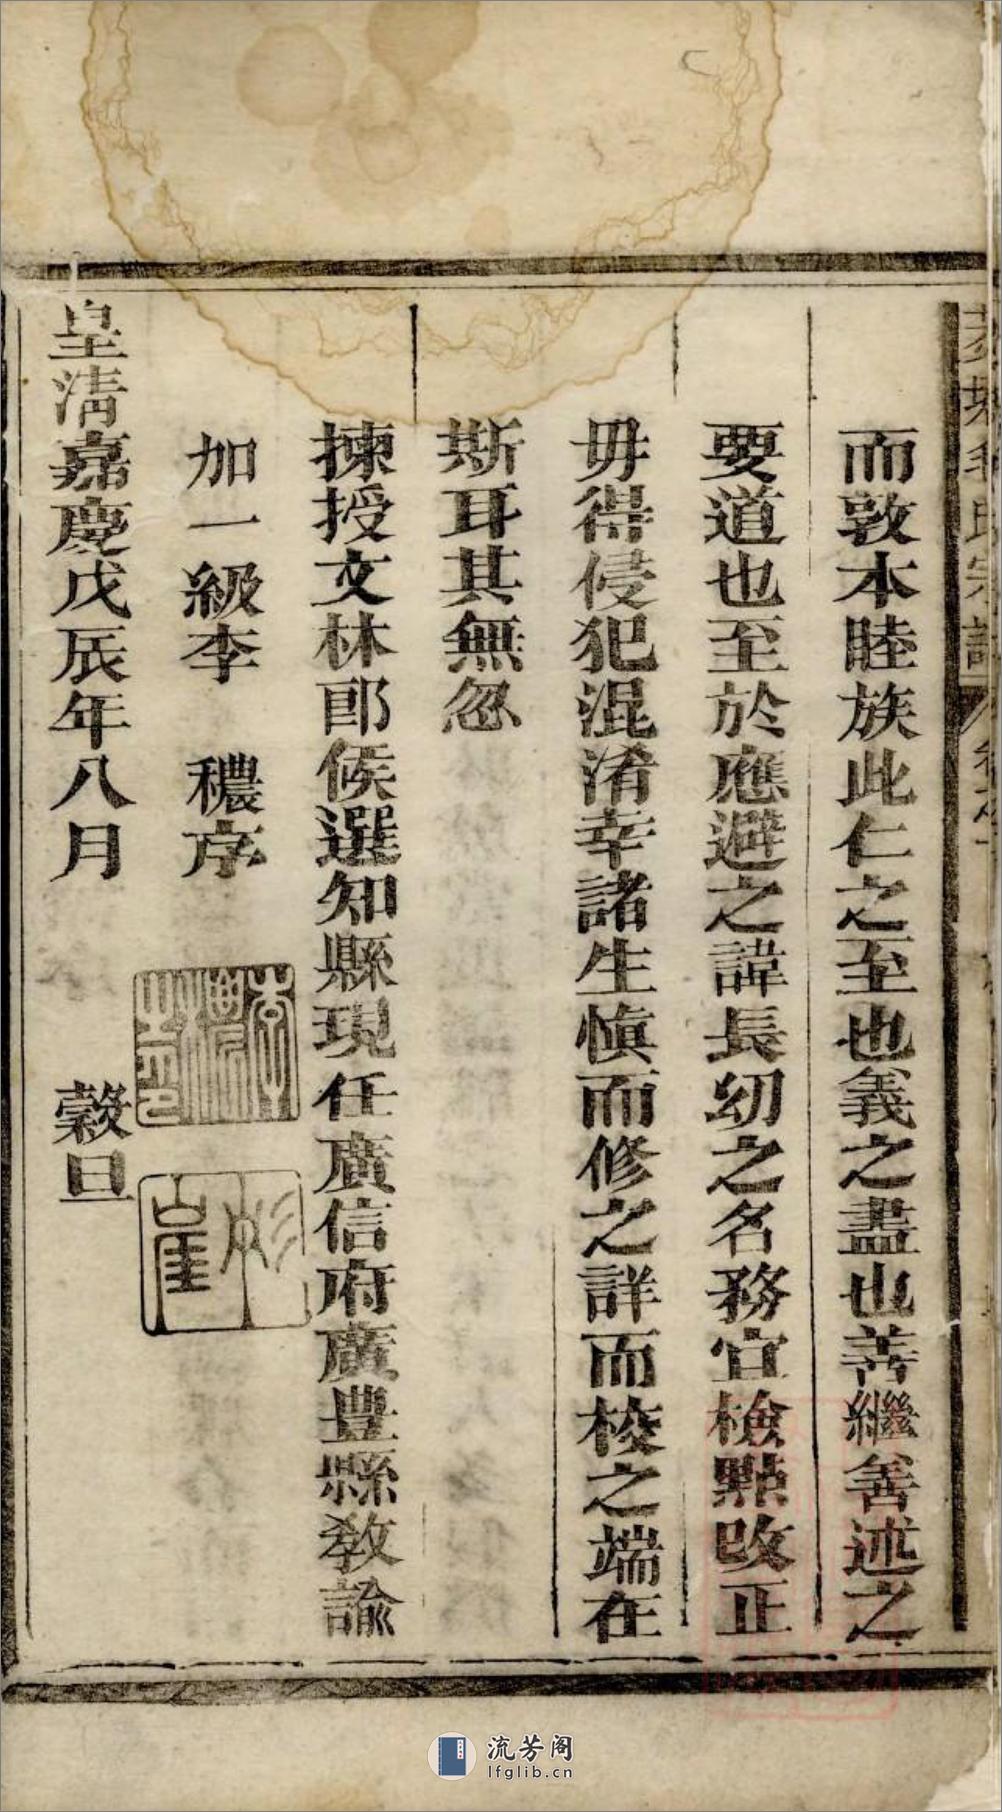 而敦本睦族此仁之至也義之盡也善繼善述之
要道也至於應避之諱長幼之名務宜檢點改正
毋得侵犯混淆幸諸生慎而修之詳而校之端在
斯耳其無忽
揀授文林郎候選知縣現任廣信府廣豐縣教諭
加一級李 穠序
皇清嘉慶戊辰年八月 穀旦
流芳阁
lfglib.cn